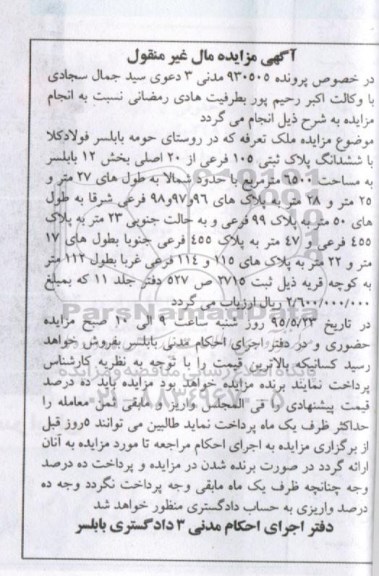 آگهی مزایده مال غیر منقول
در خصوص پرونده ۹۳۰۵۰۵ مدنی ۳ دعوی سید جمال سجادی
با وکالت اکبر رحیم پور بطرفیت هادی رمضانی نسبت به انجام
مزایده به شرح ذیل انجام می گردد
موضوع مزایده ملک تعرفه که در روستای حومه بابلسر فولادکلا
با ششدانگ پلاک ثبتی ۱۰۵ فرعی از ۲۰ اصلی بخش ۱۲ بابلسر
به مساحت ۶۵۰۰ مترمربع با حدود شمالا به طول های ۲۷ متر و
۲۵ متر و ۲۸ متر به پلاک های ۹۶و۹۷و۹۸ فرعی شرقا به طول
های ۵۰ متر به پلاک ۹۹ فرعی و به حالت جنوبی ۲۳ متر به پلاک
۴۵۵ فرعی و ۴۷ متر به پلاک ۴۵۵ فرعی جنوبا بطول های ۱۷
متر و ۲۲ متر به پلاک های ۱۱۵ و ۱۱۴ فرعی غربا بطول ۱۱۲ متر
به کوچه قریه ذیل ثبت ۲۷۱۵ ص ۵۲۷ دفتر جلد ۱۱ که بمبلغ
۲/۶۰۰/۰۰۰/۰۰۰ ریال ارزیاب می گردد
در تاریخ ۹۵/۵/۲۳ روز شنبه ساعت ۹ الی ۱۰ صبح مزایده
حضوری و در دفتر اجرای احکام مدنی بابلسر بفروش خواهد
رسید کسانیکه بالاترین قیمت را با توجه به نظریه کارشناس
پرداخت نمایند برنده مزایده خواهد بود مزایده باید ده درصد
قیمت پیشنهادی را فی المجلس واریز و مابقی ثمن معامله را
حداکثر ظرف یک ماه پرداخت نماید طالبین می توانند ۵روز قبل
از برگزاری مزایده به اجرای احکام مراجعه تا مورد مزایده به آنان
ارائه گردد در صورت برنده شدن در مزایده و پرداخت ده درصد
وجه چنانچه ظرف یک ماه مابقی وجه پرداخت نگردد وجه ده
درصد واریزی به حساب دادگستری منظور خواهد شد
دفتر اجرای احکام مدنی ۳ دادگستری بابلسر
ParsNamadData